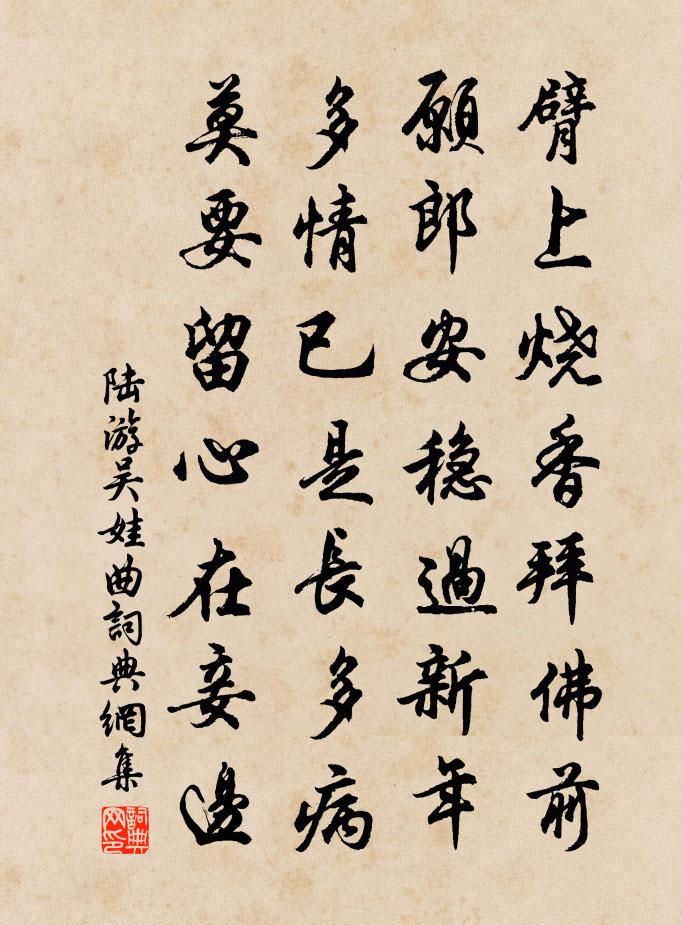 臂上燒香拜佛前
願郎安穩過新年
多情已是長多病
莫要留心在妾邊
陆游吴娃曲詞典網集
詞典网印